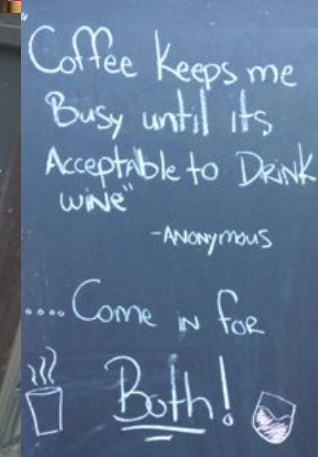 "Coffee keeps me
Busy until its
Acceptable to Drink
wine"
-Anonymous
....Come in for
Both!